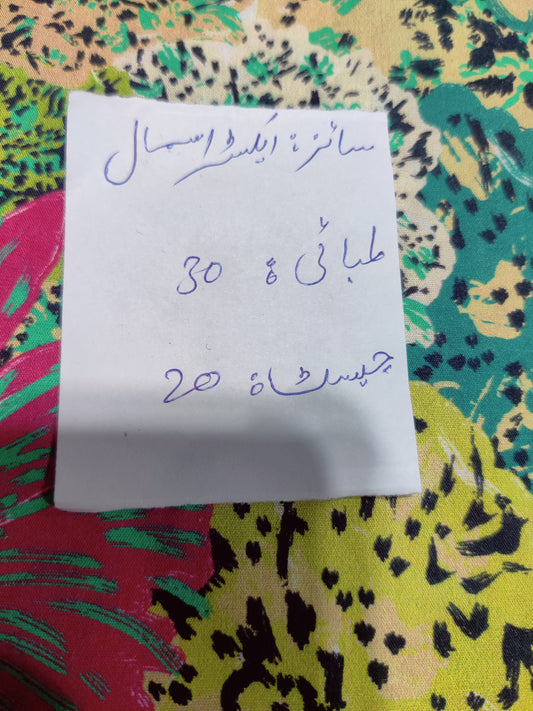 سائز: ایکسٹرا سمال
لمبائی: 30
چیسٹ: 20